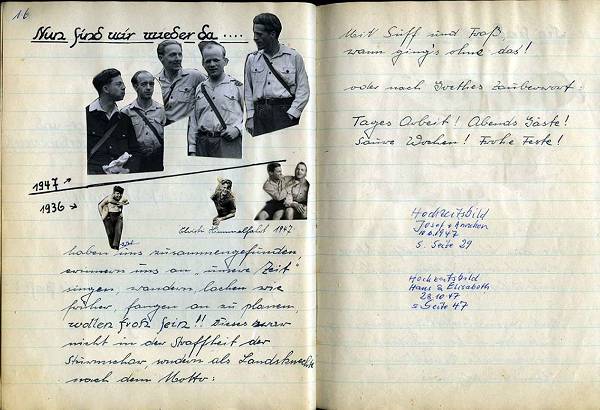 16
Nun sind wir wieder da ....
1947 →
1936 →
Christi Himmelfahrt 1947
haben uns zusammengefunden,
erinnern uns an "unsere Zeit"
singen, wandern, lachen wie
früher, fangen an zu planen,
wollen froh sein!! Dieses zwar
nicht in der Straffheit der
Sturmschar, sondern als Landsknechte
nach dem Motto:
Mit Suff und Fraß
wann ging's ohne das!
oder nach Goethes Zauberwort:
Tages Arbeit! Abends Gäste!
Saure Wochen! Frohe Feste!
Hochzeitsbild
Josef + Annchen
1947
s. Seite 29
Hochzeitsbild
Hans & Elisabeth
28.10.47
s Seite 47